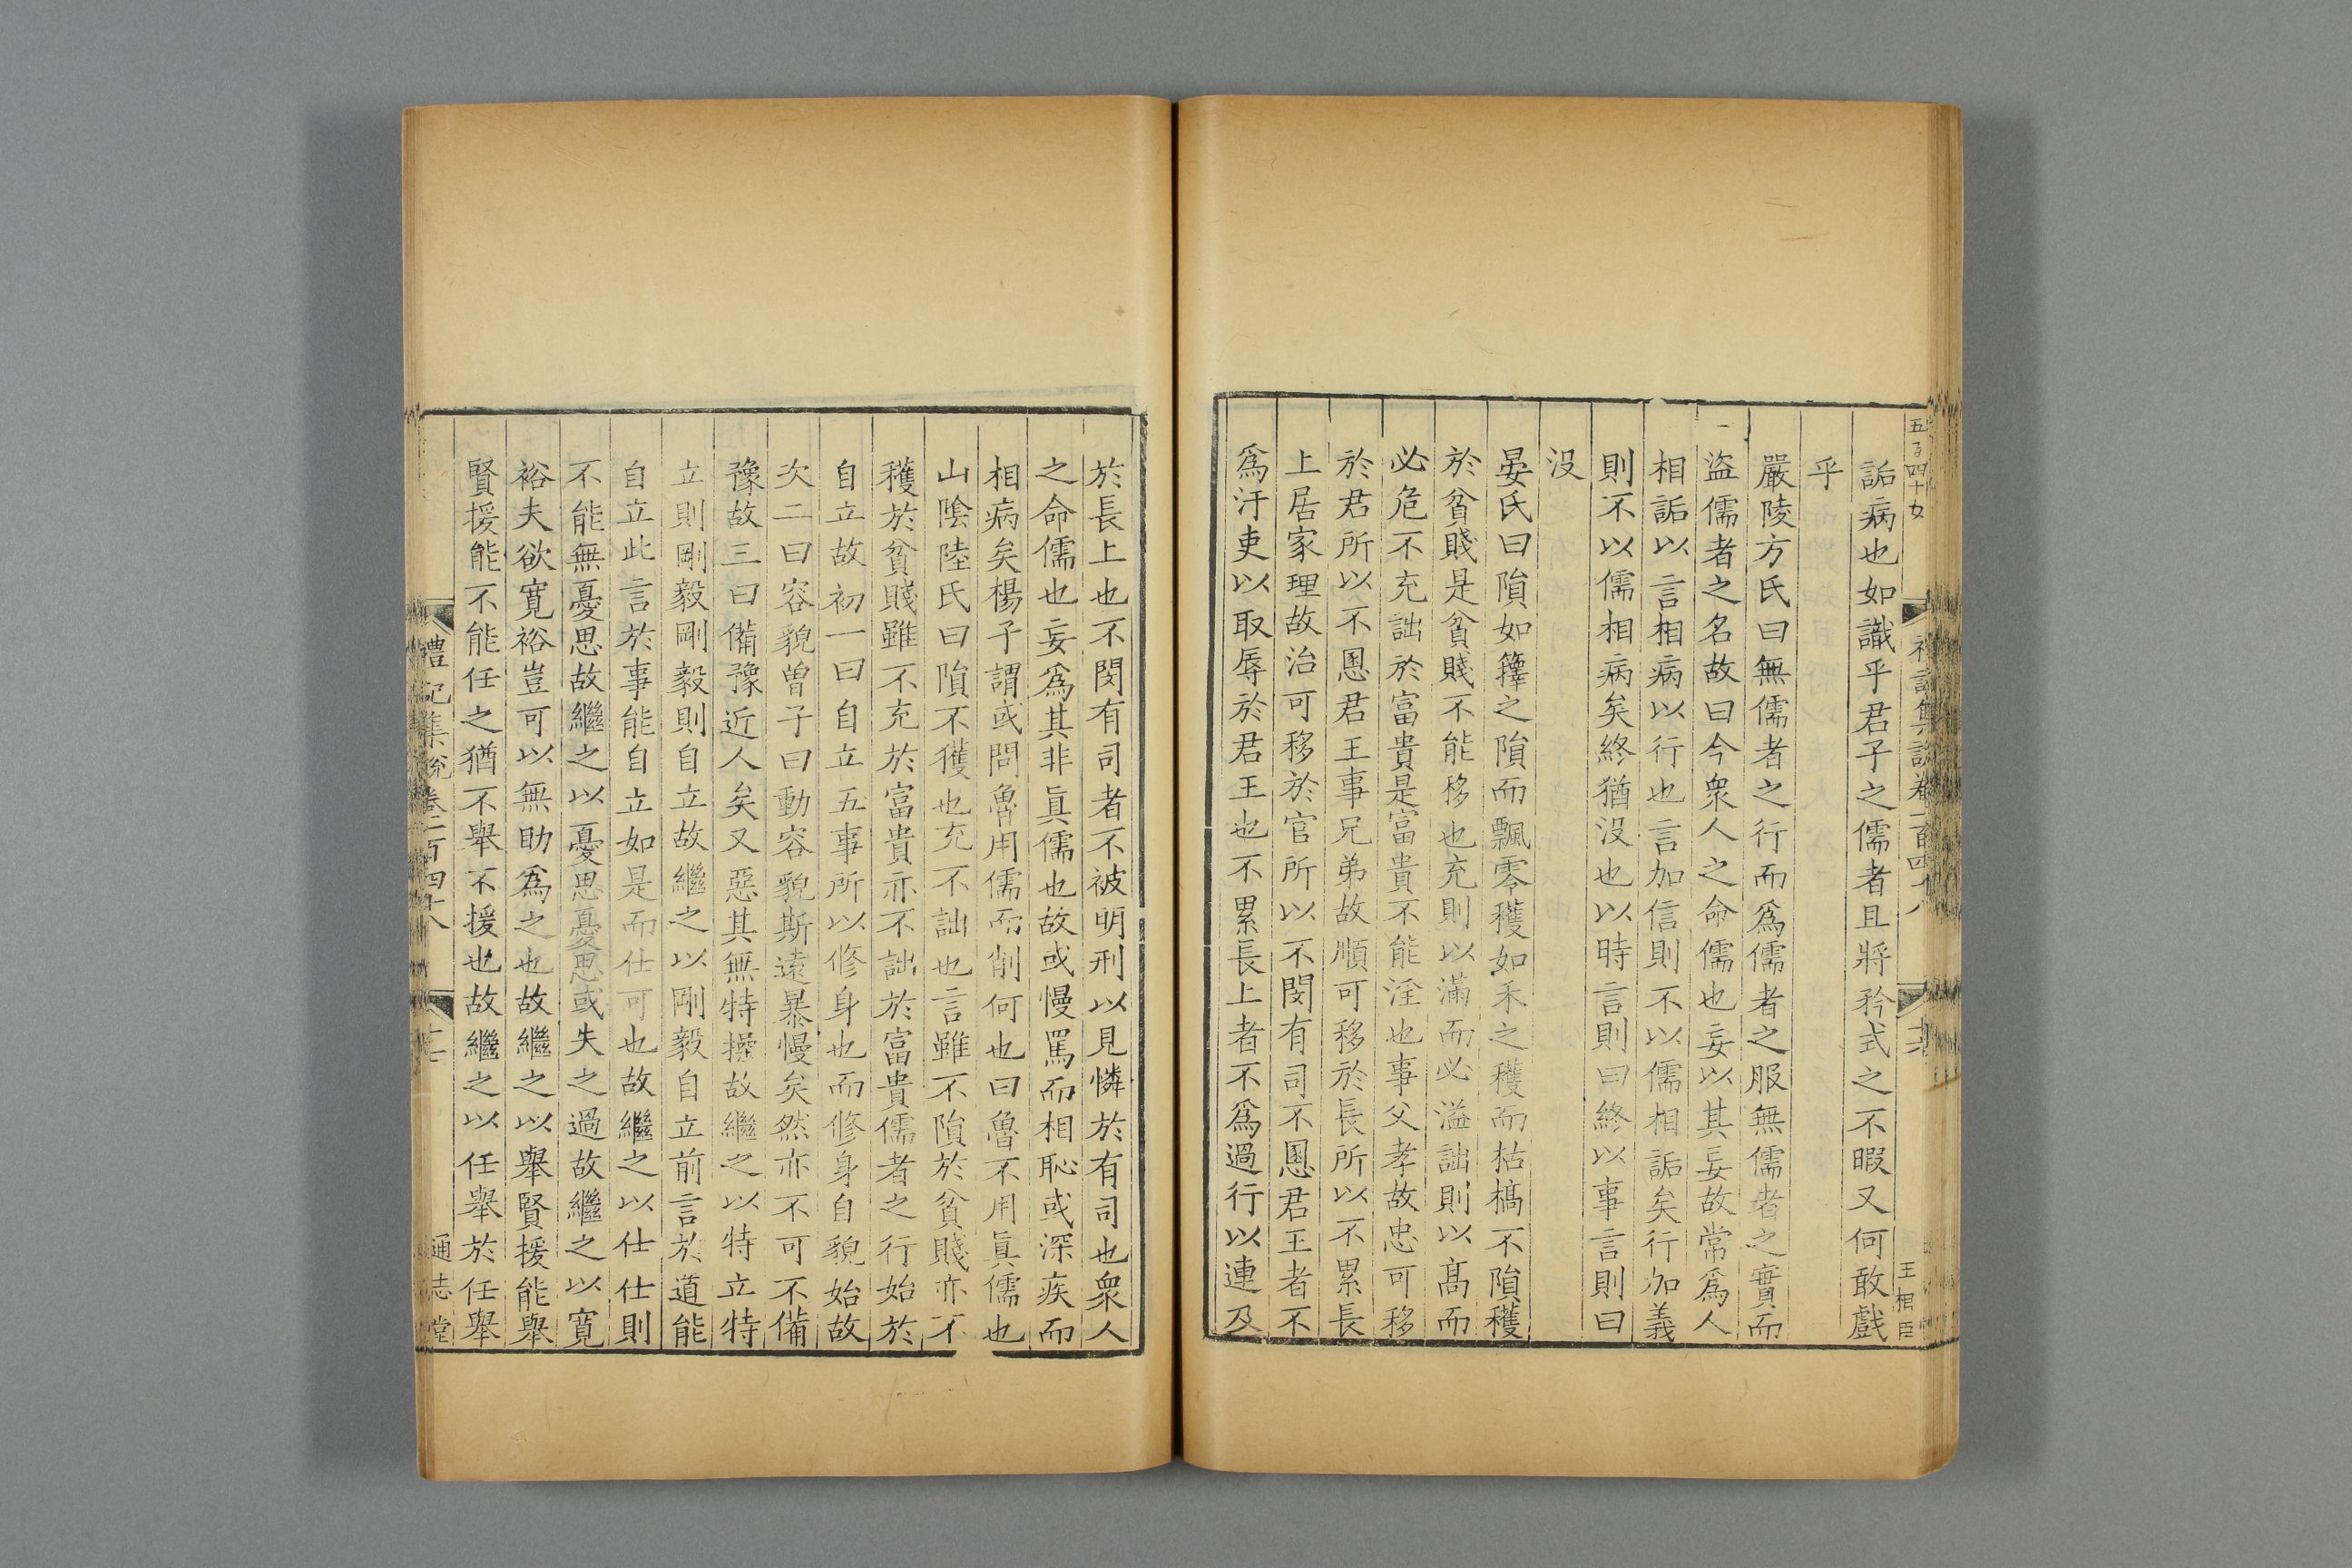 詬病也如識乎君子之儒者且將矜式之不暇又何敢戲
乎
嚴陵方氏曰無儒者之行而爲儒者之服無儒者之實而
盜儒者之名故曰今衆人之命儒也妄以其妄故常爲人
相詬以言相病以行也言加信則不以儒相詬矣行加義
則不以儒相病矣終猶沒也以時言則曰終以事言則曰
沒
晏氏曰隕如籜之隕而飄零穫如禾之穫而枯槁不隕穫
於貧賤是貧賤不能移也充則以滿而必溢詘則以髙而
必危不充詘於富貴是富貴不能淫也事父孝故忠可移
於君所以不慁君王事兄弟故順可移於長所以不累長
上居家理故治可移於官所以不閔有司不慁君王者不
爲汙吏以取辱於君王也不累長上者不爲過行以連及
於長上也不閔有司者不被明刑以見憐於有司也衆人
之命儒也妄爲其非眞儒也故或慢罵而相恥或深疾而
相病矣楊子謂或問魯用儒而削何也曰魯不用眞儒也
山陰陸氏曰隕不獲也充不詘也言雖不隕於貧賤亦不
穫於貧賤雖不充於富貴亦不詘於富貴儒者之行始於
自立故初一曰自立五事所以修身也而修身自貌始故
次二曰容貌曾子曰動容貌斯遠暴慢矣然亦不可不備
豫故三曰備豫近人矣又惡其無特操故繼之以特立特
立則剛毅剛毅則自立故繼之以剛毅自立前言於道能
自立此言於事能自立如是而仕可也故繼之以仕仕則
不能無憂思故繼之以憂思憂思或失之過故繼之以寬
裕夫欲寬裕豈可以無助爲之也故繼之以舉賢援能舉
賢援能不能任之猶不舉不援也故繼之以任舉於任舉
禮記集說卷一百四十八
通志堂